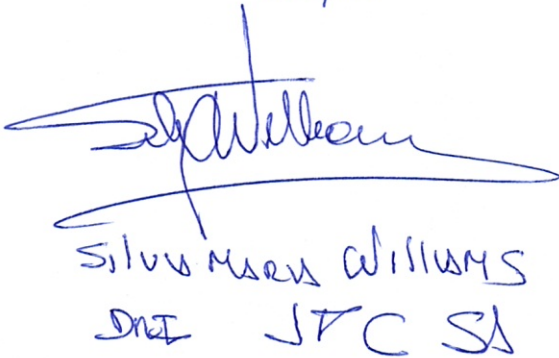 Silvia Maria Williams
JTC SA